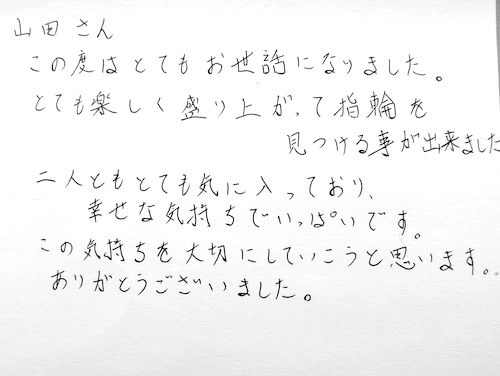 山田さん
この度はとてもお世話になりました。
とても楽しく盛り上がって指輪を
見つける事が出来ました
二人ともとても気に入っており、
幸せな気持ちでいっぱいです。
この気持ちを大切にしていこうと思います。
ありがとうございました。